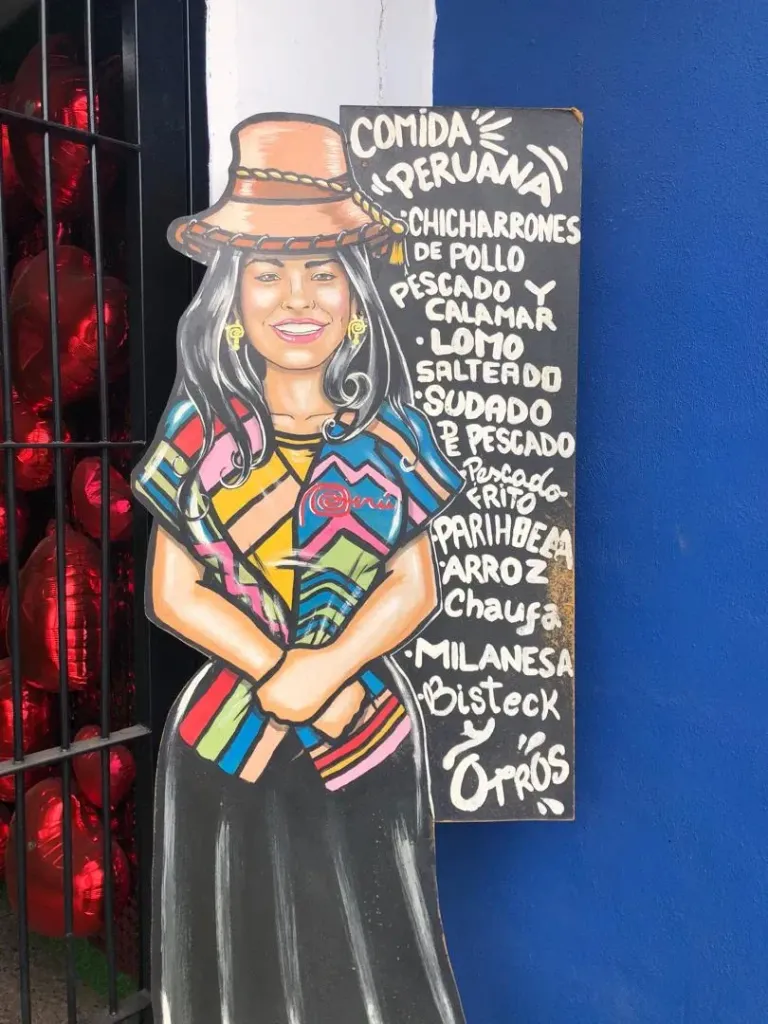 COMIDA
"PERUANA"
·CHICHARRONES
DE POLLO
PESCADO Y
CALAMAR
·LOMO
SALTEADO
·SUDADO
DE PESCADO
·Pescado
FRITO
·PARIHUELA
·ARROZ
Chaufa
·MILANESA
·Bisteck
y
OTROS
Perú